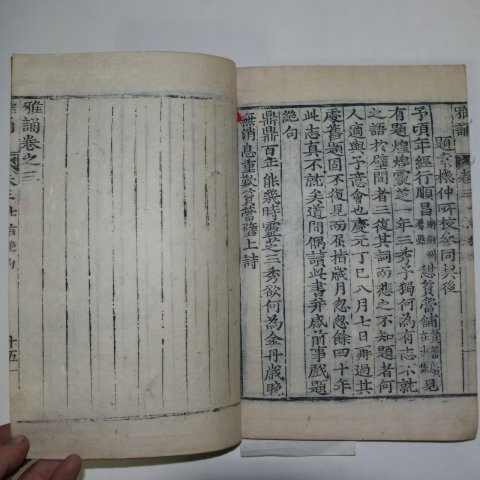 雅誦卷之三
題袁機仲所校參同契後
予頃年經行順昌憩篔簹鋪見
有題煌煌靈芝一年三秀予獨何為有志不就
之語於壁間者三復其詞而悲之不知題者何
人適與予意會也慶元丁巳八月七日再過其
處舊題固不復見而屈指歲月忽忽餘四十年
此志真不就矣道間偶讀此書并感前事戲題
絶句
鼎鼎百年能幾時靈芝三秀欲何為金丹歲晚
無消息重歎篔簹壁上詩
雅誦卷之三